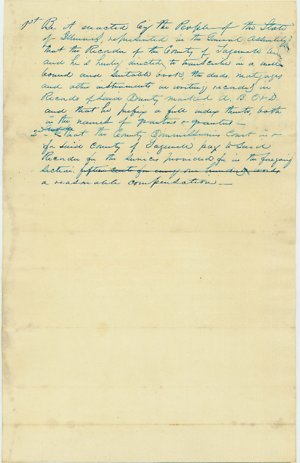 1st Be it enacted by the People of the State
of Illinois, represented in the General Assembly
that the Recorder of the County of Tazewell be
and he is hereby directed to transcribe in a well
bound and suitable book, the deeds, mortgages
and other instruments in writing, recorded in
Records of said County marked A. B. C & D.
and that he prefix a full index thereto, both
in the names of grantor & grantee —
2— That the County Commissioners Court in &
for said County of Tazewell pay to said
Recorder for the services provided for in the foregoing
section, fifteen cents for every one hundred words
a reasonable compensation —